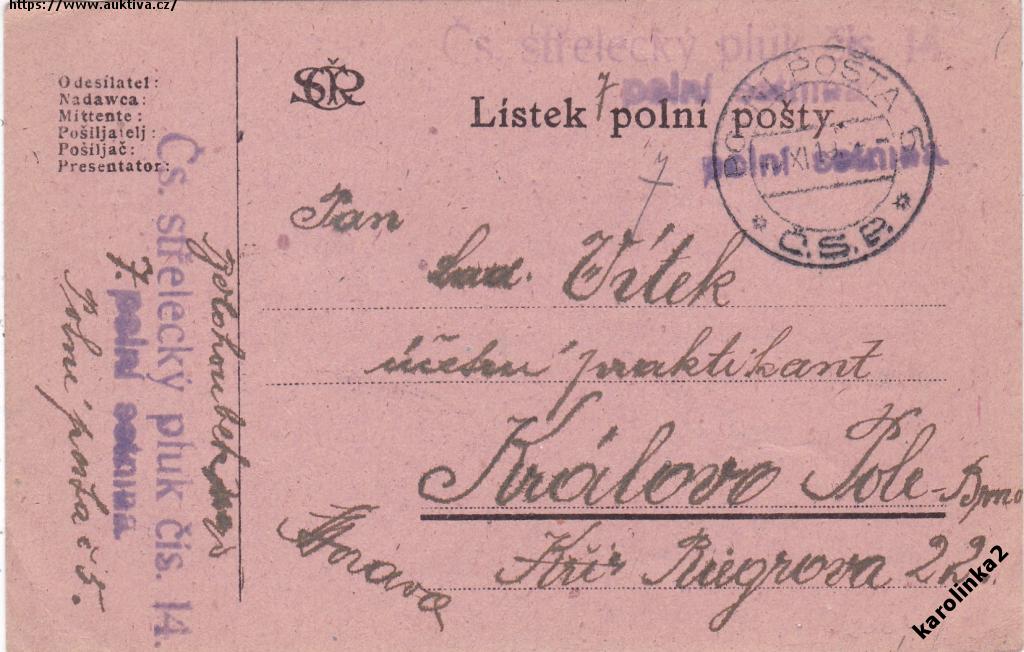 https://www.auktiva.cz/
Čs. střelecký pluk čís. 14.
7 polní setnina
SČR
Lístek polní pošty
7
polní setnina
POLNÍ POŠTA 5
XI
Č.S.P.
Odesílatel:
Nadawca:
Mittente:
Pošiljatelj:
Pošiljač:
Presentator:
Čs. střelecký pluk čís. 14.
7. polní setnina
Polní pošta č 5.
Pan
Lad. Vítek
účetní praktikant
Královo Pole - Brno
Morava
Kříž Riegrova 22.
karolinka2